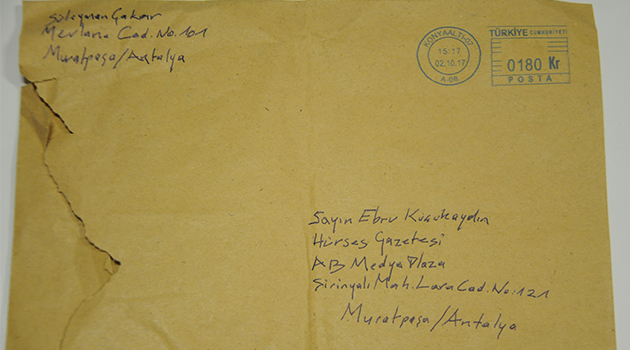 Süleyman Çakar
Mevlana Cad. No. 101
Muratpaşa/Antalya
KONYAALTI-07
15:17
02.10.17
A-06
TÜRKİYE CUMHURİYETİ
0180 Kr
POSTA
Sayın Ebru Küçükaydın
Hürses Gazetesi
AB Medya Plaza
Şirinyalı Mah. Lara Cad. No: 121
Muratpaşa/Antalya